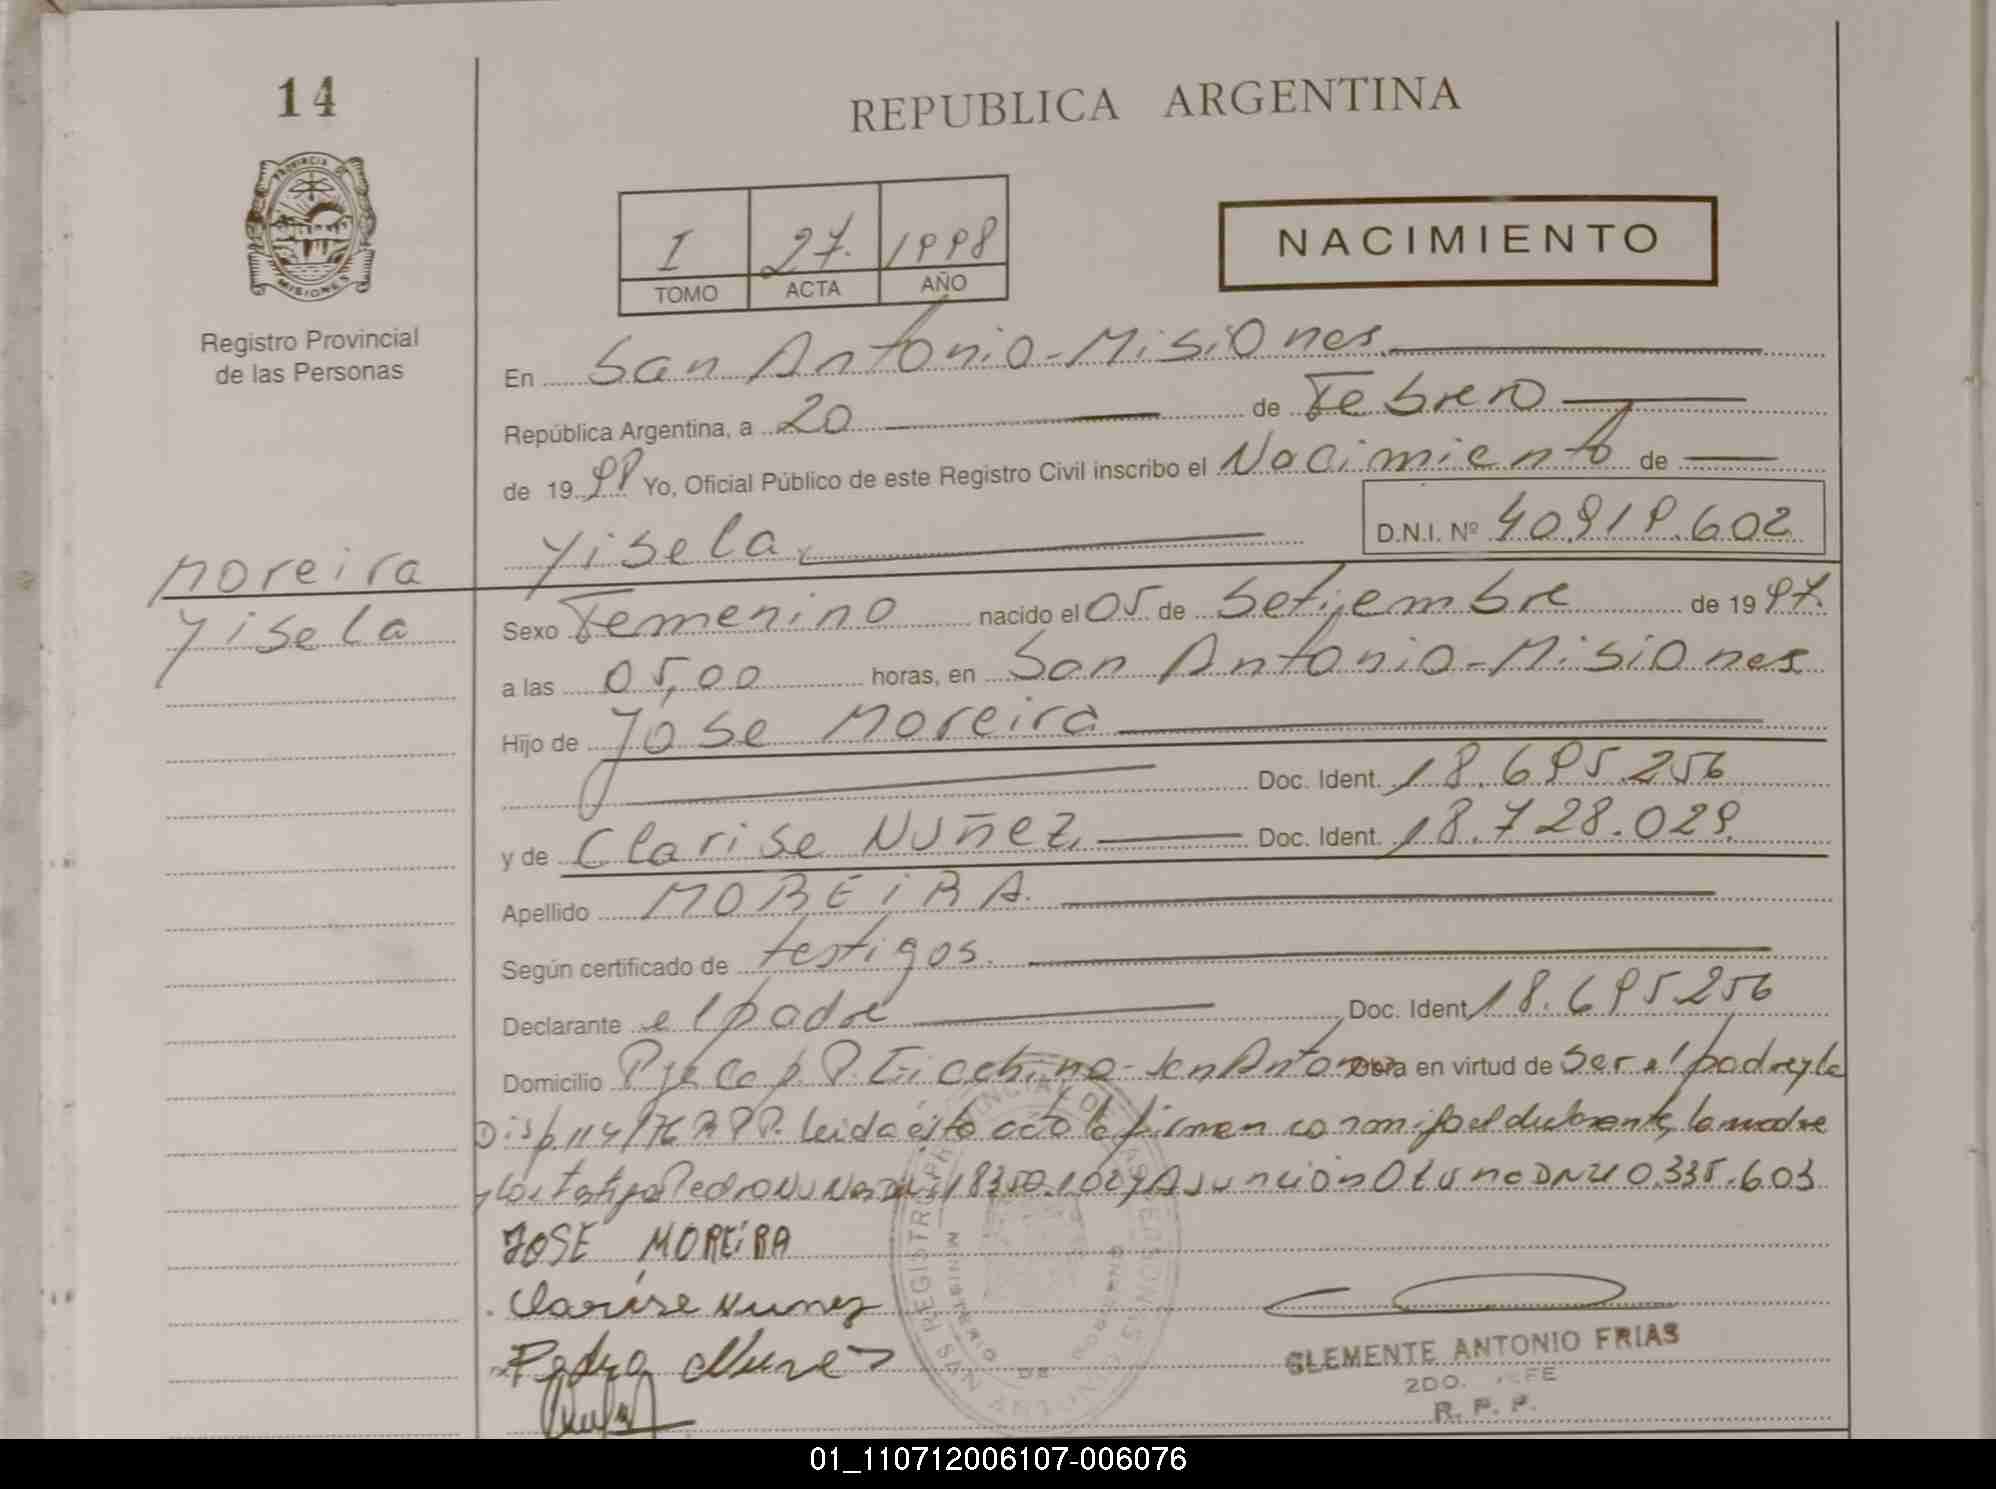 14
REPUBLICA ARGENTINA
PROVINCIA DE
MISIONES
Registro Provincial
de las Personas
I 27. 1998
TOMO ACTA AÑO
NACIMIENTO
En San Antonio-Misiones
República Argentina, a 20 de Febrero
de 1998 Yo, Oficial Público de este Registro Civil inscribo el Nacimiento de
Yisela D.N.I. Nº 40.919.602
Moreira
Yisela
Sexo Femenino nacido el 05 de Setiembre de 1997.
a las 05,00 horas, en San Antonio-Misiones
Hijo de Jose Moreira
Doc. Ident. 18.695.256
y de Clarise Nuñez Doc. Ident. 18.728.029
Apellido MOREIRA.
Según certificado de testigos.
Declarante el padre Doc. Ident. 18.695.256
Domicilio San Antonio Obra en virtud de ser el padre y la
Disp. 114/76 R.P.P. leida esta acta la firman conmigo el declarante, la madre
y los testigos Pedro Nuñez y Asunción
JOSE MOREIRA
Clarise Nunez
Pedro Nunez
CLEMENTE ANTONIO FRIAS
2DO. JEFE
R. P. P.
REGISTRO PROVINCIAL DE LAS PERSONAS
MINISTERIO DE GOBIERNO
SAN ANTONIO
01_110712006107-006076